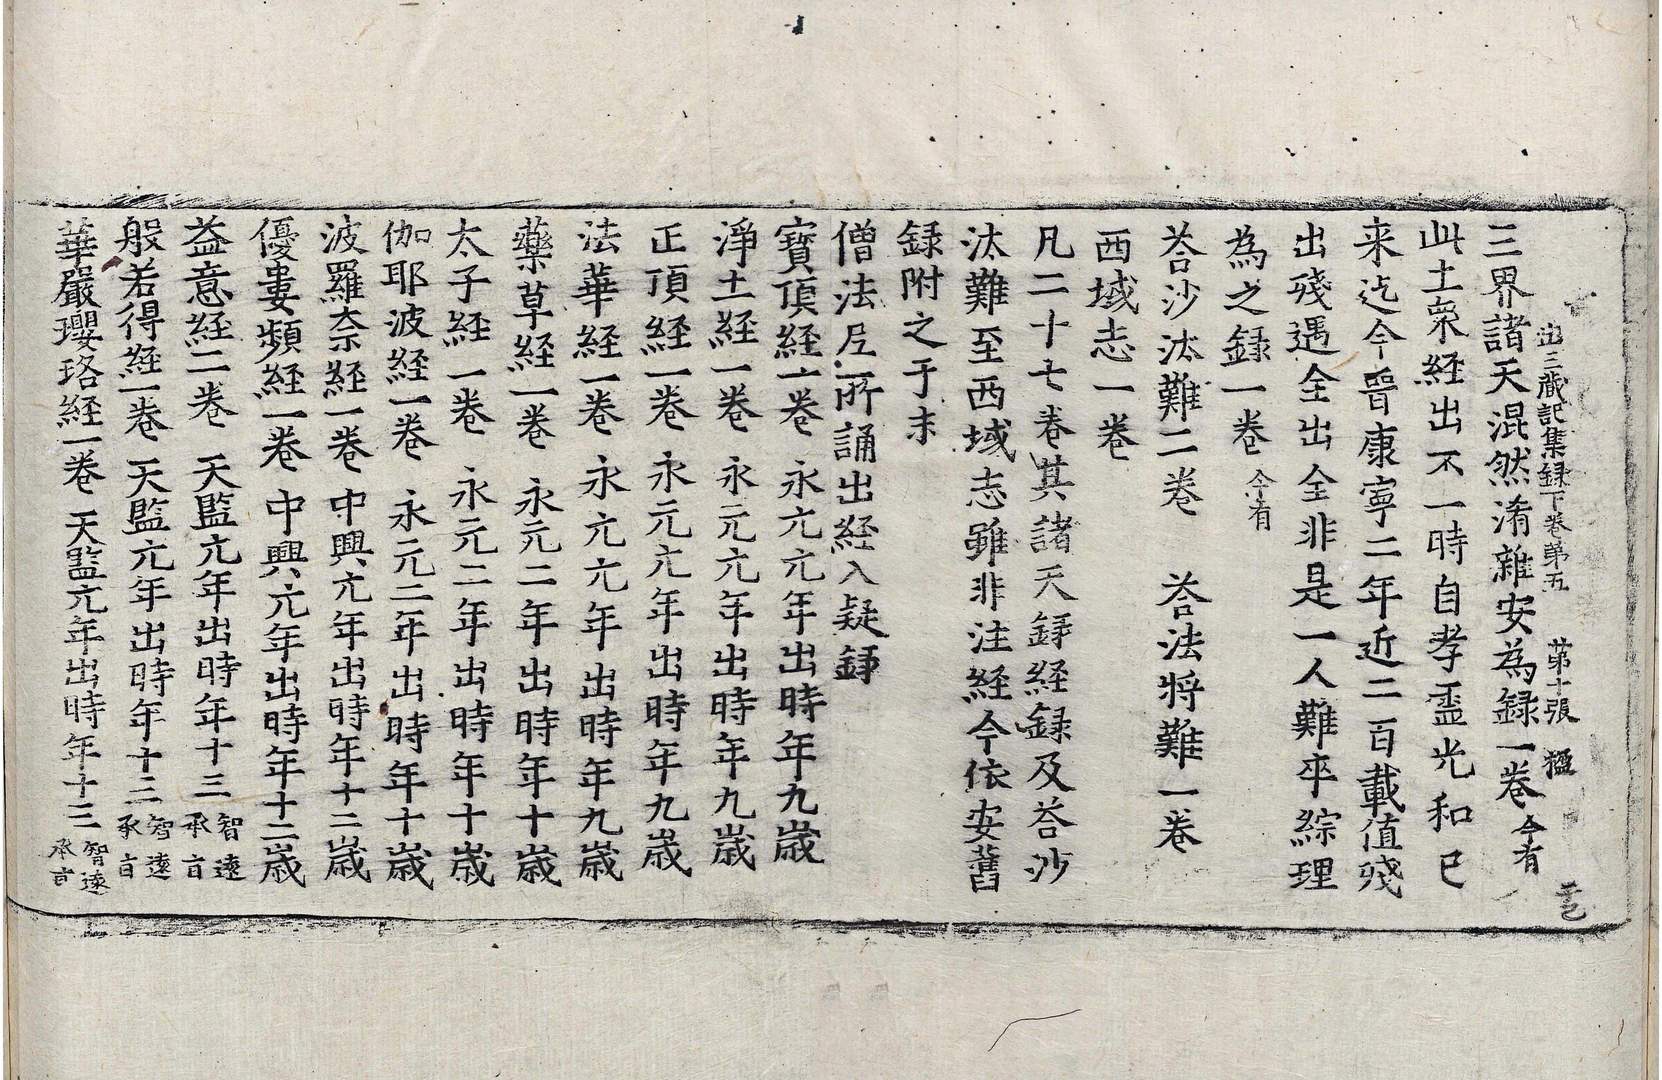 出三藏記集録下卷第五　第十張　楹
三界諸天混然淆雜安為録一卷今有
此土衆経出不一時自孝霊光和已
来迄今晉康寧二年近二百載值殘
出殘遇全出全非是一人難卒綜理
為之録一卷今有
荅沙汰難二卷　荅法将難一卷
西域志一卷
凡二十七卷其諸天録経録及荅沙
汰難至西域志雖非注経今依安舊
録附之于末
僧法尼所誦出経入疑録
寳頂経一卷　永元元年出時年九歳
淨土経一卷　永元元年出時年九歳
正頂経一卷　永元元年出時年九歳
法華経一卷　永元元年出時年九歳
藥草経一卷　永元二年出時年十歳
太子経一卷　永元二年出時年十歳
伽耶波経一卷　永元二年出時年十歳
波羅奈経一卷　中興元年出時年十二歳
優婁頻経一卷　中興元年出時年十二歳
益意経二卷　天監元年出時年十三智遠承旨
般若得経一卷　天監元年出時年十三智遠承旨
華嚴瓔珞経一卷　天監元年出時年十三智遠承旨